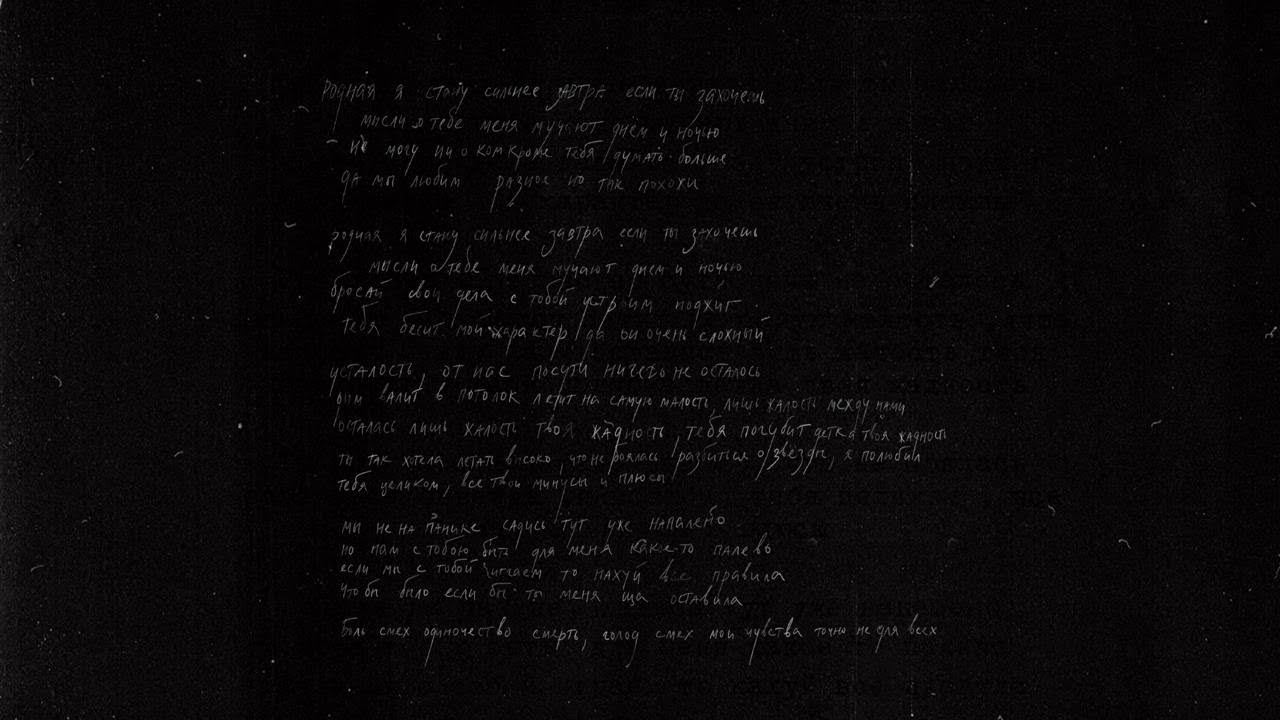 родная я стану сильнее завтра если ты захочешь
мысли о тебе меня мучают днём и ночью
не могу ни о ком кроме тебя думать больше
да мы любим разное но так похожи
родная я стану сильнее завтра если ты захочешь
мысли о тебе меня мучают днем и ночью
бросай свои дела с тобой устроим поджиг
тебя бесит мой характер да он очень сложный
усталость, от нас посути ничего не осталось
дым валит в потолок летит на самую малость, лишь жалость между нами
осталась лишь жалость твоя жадность, тебя погубит детка твоя жадность
ты так хотела летать высоко, что не боялась разбиться о звезды, я полюбил
тебя целиком, все твои минусы и плюсы
мы не на панике садись тут уже напалено
но нам с тобою быть для меня какое-то палево
если мы с тобой играем то нахуй все правила
что бы было если бы ты меня ща оставила
боль смех одиночество смерть, голод смех мои чувства точно не для всех